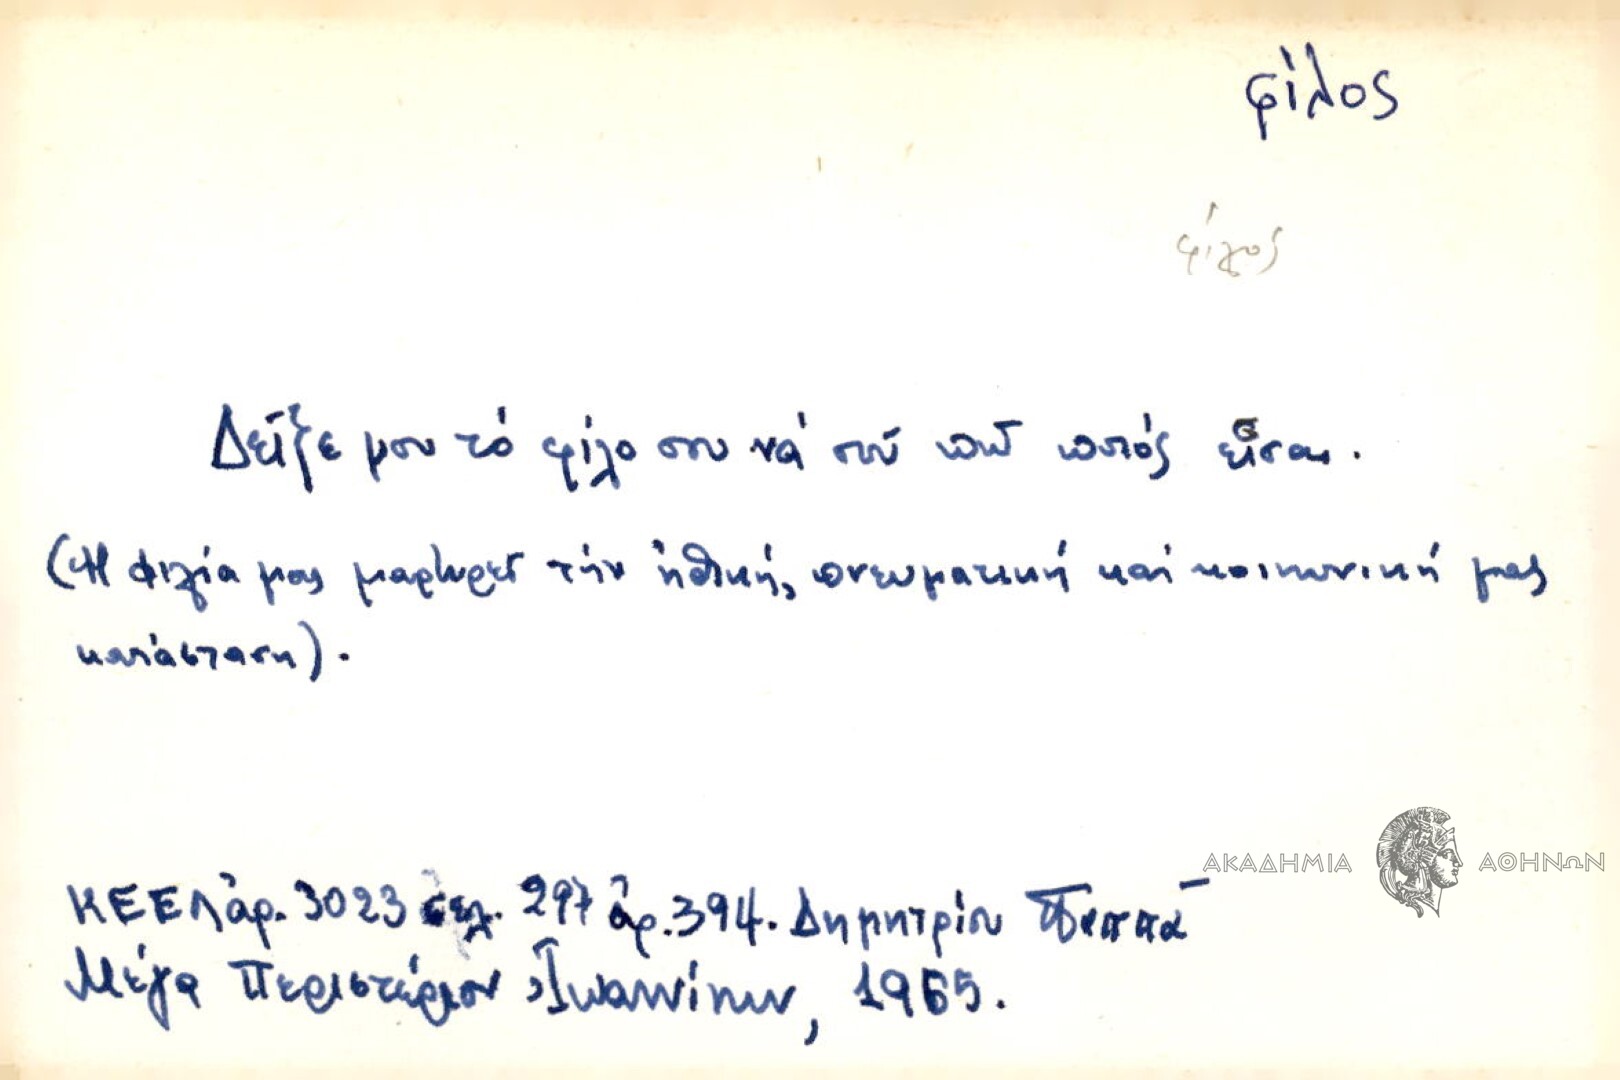 φίλος
φίλος
Δεῖξε μου τό φίλο σου νά σοῦ πῶ ποιός εἶσαι.
(Ἡ φιλία μας μαρτυρεῖ τήν ἠθική, πνευματική καί κοινωνική μας
κατάσταση).
ΚΕΕΛ ἀρ. 3023 σελ. 297 ἀρ. 394. Δημητρίου Παππᾶ
Μέγα Περιστέριον Ἰωαννίνων, 1965.
ΑΚΑΔΗΜΙΑ ΑΘΗΝΩΝ